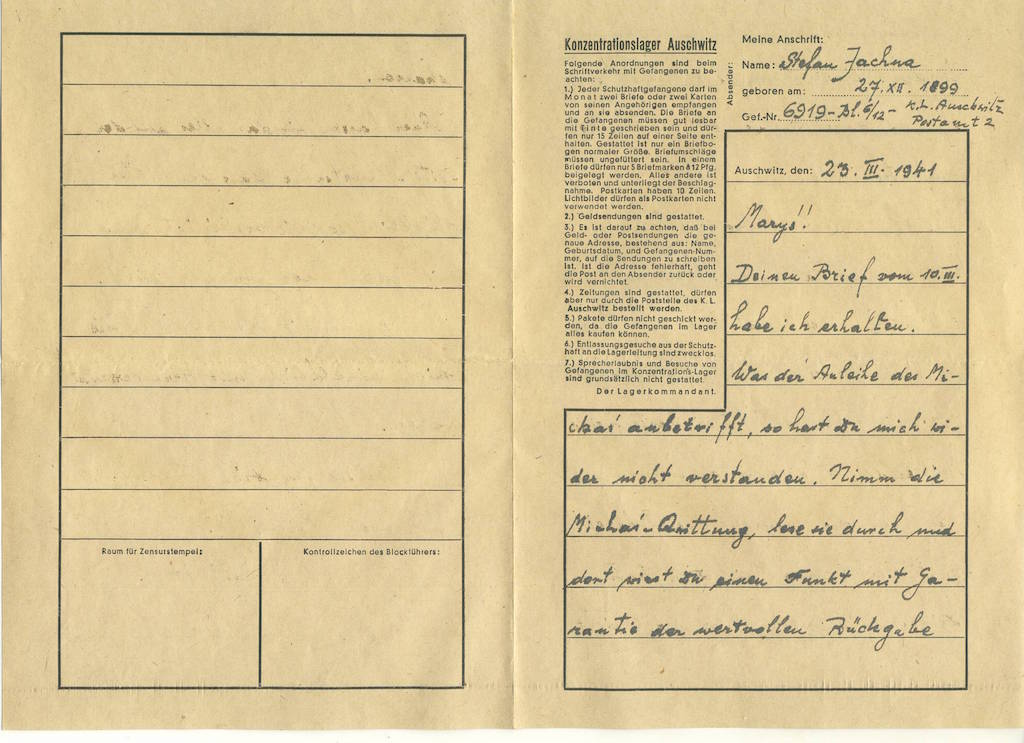 Raum für Zensurstempel:
Kontrollzeichen des Blockführers:
Konzentrationslager Auschwitz
Folgende Anordnungen sind beim
Schriftverkehr mit Gefangenen zu be-
achten:
1.) Jeder Schutzhaftgefangene darf im
Monat zwei Briefe oder zwei Karten
von seinen Angehörigen empfangen
und an sie absenden. Die Briefe an
die Gefangenen müssen gut lesbar
mit Tinte geschrieben sein und dür-
fen nur 15 Zeilen auf einer Seite ent-
halten. Gestattet ist nur ein Briefbo-
gen normaler Größe. Briefumschläge
müssen ungefüttert sein. In einem
Briefe dürfen nur 5 Briefmarken à 12 Pfg.
beigelegt werden. Alles andere ist
verboten und unterliegt der Beschlag-
nahme. Postkarten haben 10 Zeilen.
Lichtbilder dürfen als Postkarten nicht
verwendet werden.
2.) Geldsendungen sind gestattet.
3.) Es ist darauf zu achten, daß bei
Geld- oder Postsendungen die ge-
naue Adresse, bestehend aus: Name,
Geburtsdatum, und Gefangenen-Num-
mer, auf die Sendungen zu schreiben
ist. Ist die Adresse fehlerhaft, geht
die Post an den Absender zurück oder
wird vernichtet.
4.) Zeitungen sind gestattet, dürfen
aber nur durch die Poststelle des K. L.
Auschwitz bestellt werden.
5.) Pakete dürfen nicht geschickt wer-
den, da die Gefangenen im Lager
alles kaufen können.
6.) Entlassungsgesuche aus der Schutz-
haft an die Lagerleitung sind zwecklos.
7.) Sprecherlaubnis und Besuche von
Gefangenen im Konzentrations-Lager
sind grundsätzlich nicht gestattet.
Der Lagerkommandant.
Absender:
Meine Anschrift:
Name: Stefan Jachna
geboren am: 27. XII. 1899
Gef.-Nr. 6919 - Bl. 6/12 - K.L. Auschwitz
Postamt 2
Auschwitz, den: 23. III. 1941
Maryś!!
Deinen Brief vom 10. III.
habe ich erhalten.
Was der Anleihe des Mi-
chaś anbetrifft, so hast Du mich wi-
der nicht verstanden. Nimm die
Michaś-Quittung, lese sie durch und
dort wiest Du einen Punkt mit Ga-
rantie der wertvollen Rückgabe